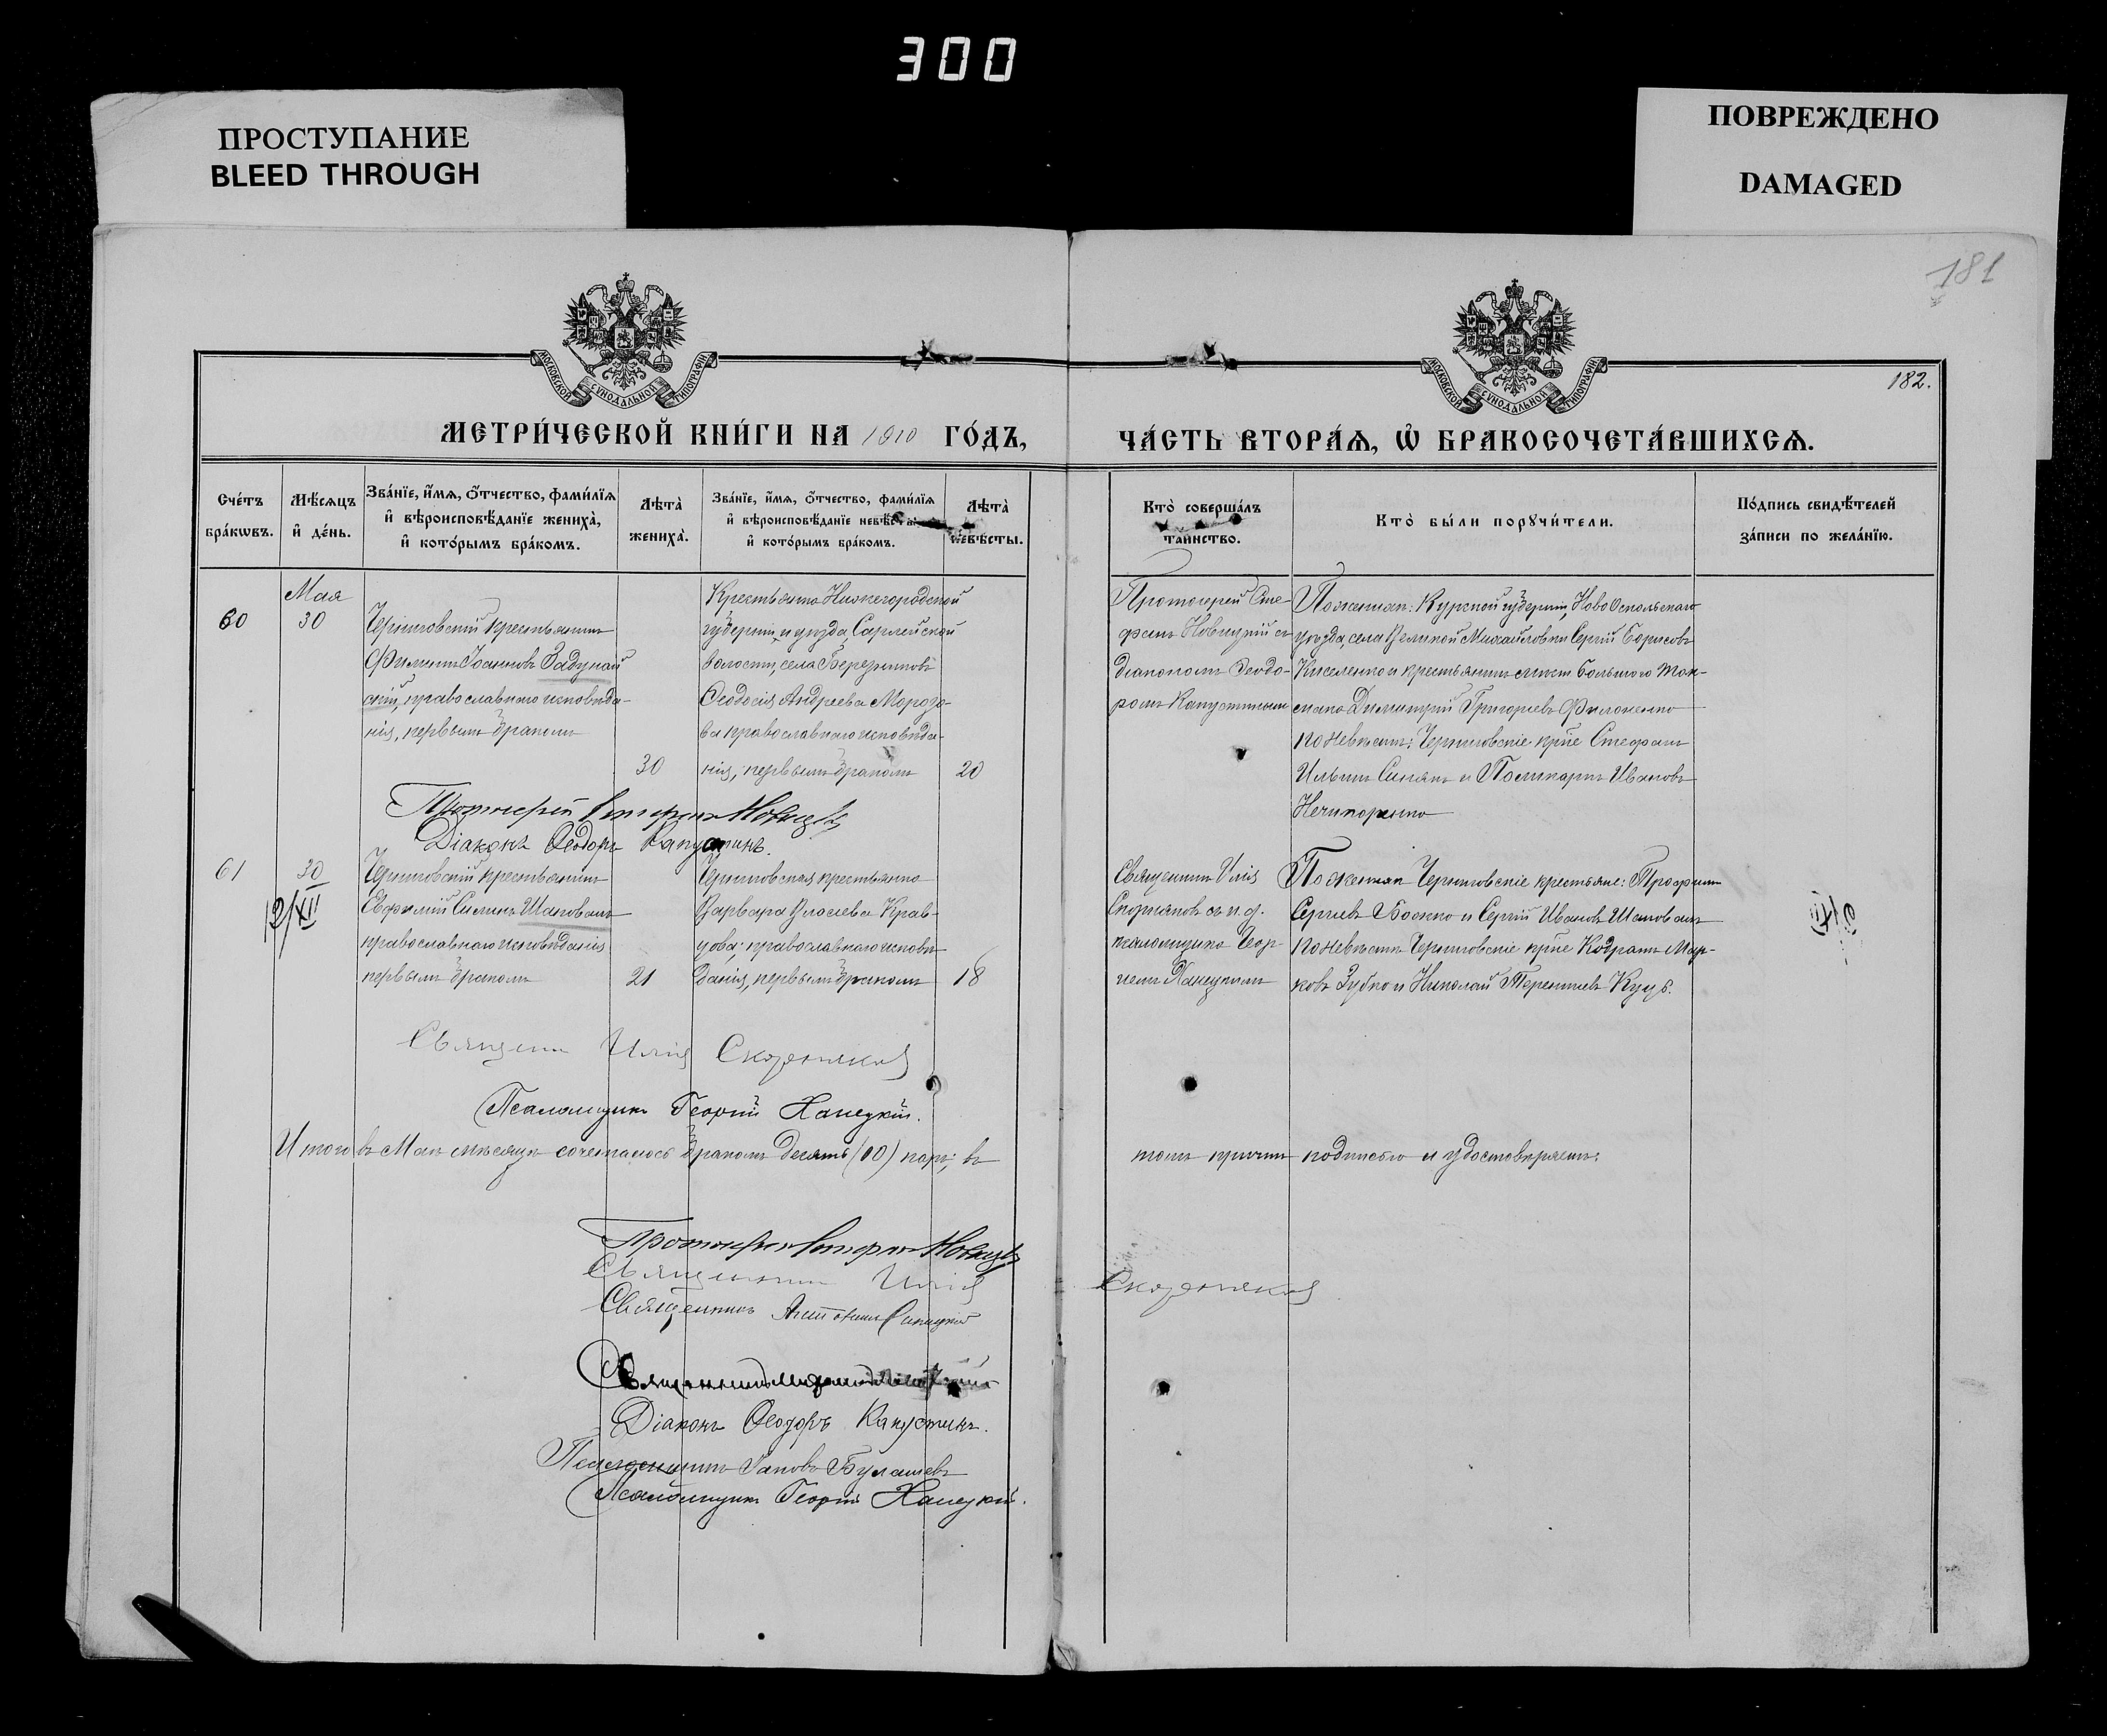 300
ПРОСТУПАНИЕ
BLEED THROUGH
ПОВРЕЖДЕНО
DAMAGED
181
182.
МОСКОВСКОЙ СѴНОДАЛЬНОЙ ТИПОГРАФІИ
МОСКОВСКОЙ СѴНОДАЛЬНОЙ ТИПОГРАФІИ
МЕТРИ́ЧЕСКОЙ КНИ́ГИ НА 1910 ГО́ДЪ,
ЧА́СТЬ ВТОРА́Ѧ, Ѽ БРАКОСОЧЕТА́ВШИХСѦ.
Сче́тъ бра́кѡвъ.
Мѣ́сѧцъ и҆ де́нь.
Зва́нїе, и҆́мѧ, ѻ҆́тчество, фами́лїѧ и҆ вѣроисповѣ́данїе жениха̀, и҆ кото́рымъ бра́комъ.
Лѣта̀ жениха̀.
Зва́нїе, и҆́мѧ, ѻ҆́тчество, фами́лїѧ и҆ вѣроисповѣ́данїе невѣ́сты и҆ кото́рымъ бра́комъ.
Лѣта̀ невѣ́сты.
Кто̀ соверша́лъ та́инство.
Кто̀ бы́ли порꙋчи́тели.
По́дпись свидѣ́телей за́писи по жела́нїю.
60
Мая
30
Черниговскій крестьянинъ
Филиппъ Іоанновъ Задунай
скій, православнаго исповѣда-
нія, первымъ бракомъ
30
Крестьянка Нижегородской
губерніи и уѣзда, Сарлейской
волости, села
Ѳеодосія Андреева Морозо-
ва православнаго исповѣда-
нія, первымъ бракомъ
20
Протоіерей Сте-
фанъ Новицкій съ
діакономъ Ѳеодо-
ромъ Капустинымъ
По женихѣ: Курской губерніи, НовоОскольскаго
уѣзда, села Великой Михайловки Сергій Борисовъ
Киселенко и крестьянинъ мѣст. Большого Ток-
мака Димитрій Григорьевъ Филоненко
по невѣстѣ: Черниговскіе кр̃не Стефанъ
Ильинъ и Поликарпъ Ивановъ
Нечипоренко
Протоіерей Стефанъ Новицкій
Діаконъ Ѳеодоръ Капустинъ.
61
30
12/XII
Черниговскій крестьянинъ
Евфимій Силинъ Шаповалъ
православнаго исповѣданія
первымъ бракомъ
21
Черниговская крестьянка
Варвара Власіева Крав-
цова, православнаго исповѣ-
данія, первымъ бракомъ
18
Священникъ Илія
Скорняковъ съ и. д.
псаломщика Геор-
гіемъ Ханецкимъ
По женихѣ Черниговскіе крестьяне: Трофимъ
Сергіевъ Бойко и Сергій Ивановъ Шаповалъ
по невѣстѣ Черниговскіе кр̃не Кодратъ Мар-
ковъ Зубко и Николай Терентіевъ Куцъ.
Священникъ Илія Скорняковъ
Псаломщикъ Георгій Ханецкій.
Итого въ Маѣ мѣсяцѣ сочеталось бракомъ десять (10) паръ, въ
томъ причтъ подписью и удостовѣряетъ:
Протоіерей Стефанъ Новицкій
Священникъ Илія Скорняковъ
Священникъ Антоній Синицкій
Священникъ
Діаконъ Ѳеодоръ Капустинъ.
Псаломщикъ Іаковъ Булашевъ
Псаломщикъ Георгій Ханецкій.